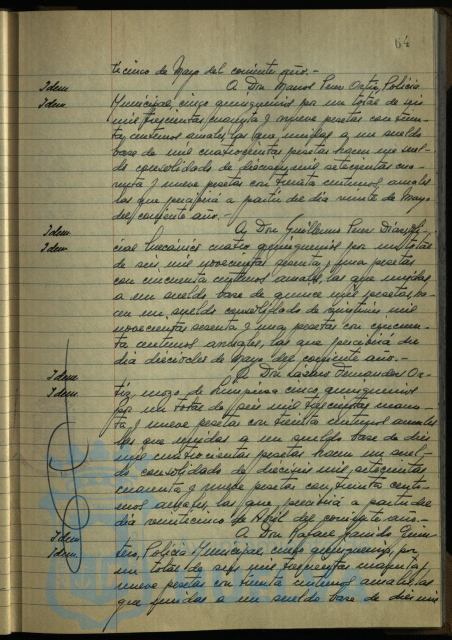 64
ticinco de Mayo del corriente año.-
Idem A Don Manuel Perez Ortiz, Policia
Idem Municipal, cinco quinquenios por un total de seis
mil trescientas cuarenta y nueve pesetas con trein-
ta centimos anuales las que, unidas a un sueldo
base de mil cuatrocientas pesetas hacen un suel-
do consolidado de dieciseis mil setecientas cua-
renta y nueve pesetas con treinta centimos anuales
las que percibirá a partir del dia veinte de Mayo
del corriente año.-
Idem A Don Guillermo Perez Diaz, Ofi-
Idem cial mecánico cuatro quinquenios por un total
de seis mil novecientas sesenta y una pesetas
con cincuenta centimos anuales, las que unidas
a un sueldo base de quince mil pesetas, ha-
cen un sueldo consolidado de veintiun mil
novecientas sesenta y una pesetas con cincuen-
ta centimos anuales, las que percibirá del
dia dieciocho de Mayo del corriente año.-
Idem A Don Lázaro Fernandez Or-
Idem tiz, mozo de limpieza cinco quinquenios
por un total de seis mil trescientas cuaren-
ta y nueve pesetas con treinta centimos anuales
las que unidas a un sueldo base de diez
mil cuatrocientas pesetas hacen un suel-
do consolidado de dieciseis mil setecientas
cuarenta y nueve pesetas con treinta centi-
mos anuales, las que percibirá a partir del
dia veinticinco de Abril del corriente año.-
Idem A Don Rafael
Idem Policia Municipal, cinco quinquenios, por
un total de seis mil trescientas cuarenta y
nueve pesetas con treinta centimos anuales, las
que unidas a un sueldo base de diez mil